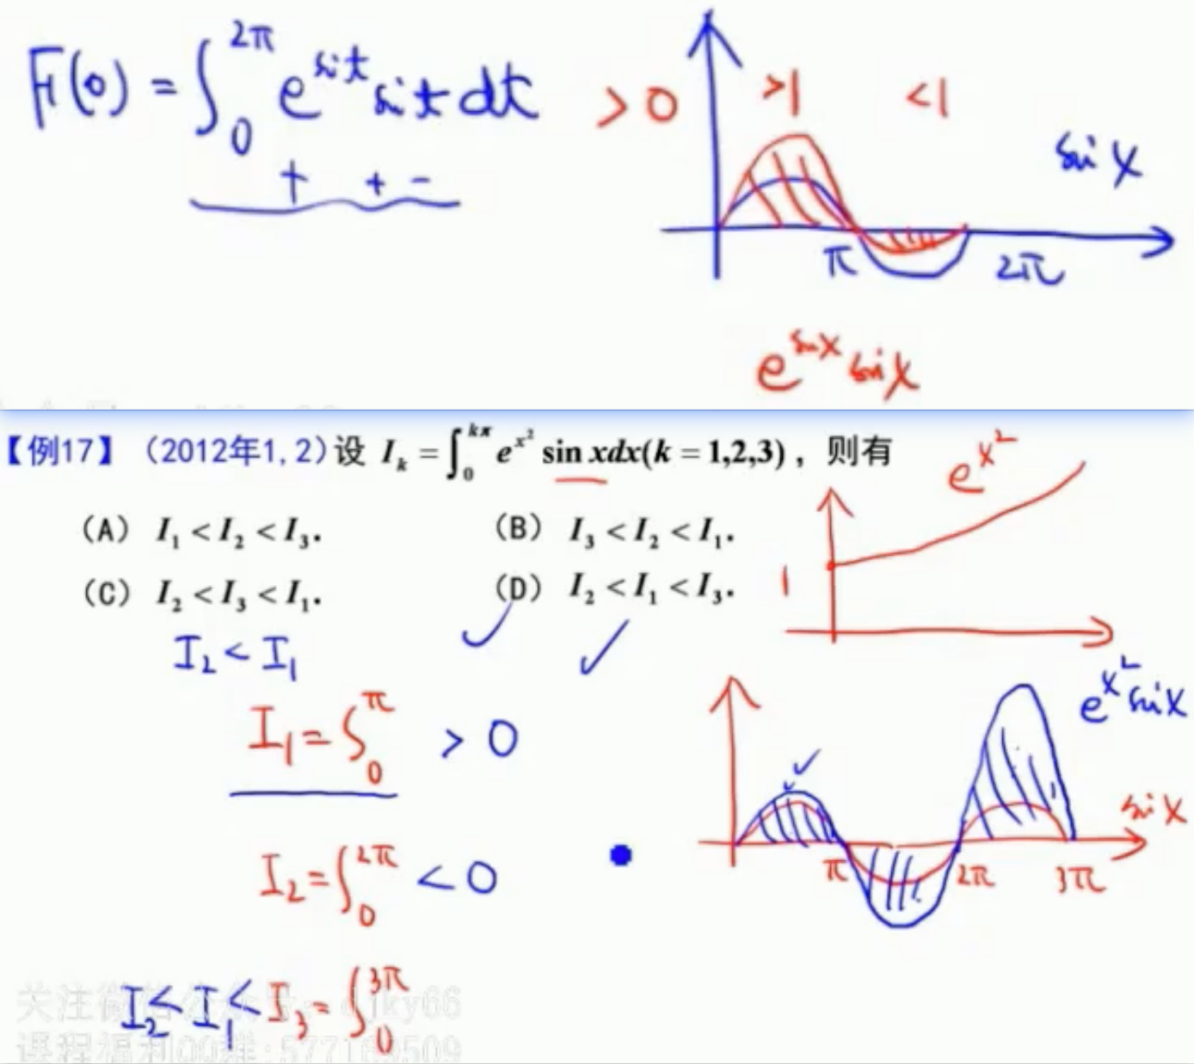 F(0) = ∫₀^{2π} e^{sin t} sin t dt > 0
+ + -
>1 <1
sin x
π 2π
e^{sin x} sin x
【例17】（2012年1,2）设 I_k = ∫₀^{kπ} e^{x²} sin xdx(k = 1,2,3)，则有
(A) I₁ < I₂ < I₃. (B) I₃ < I₂ < I₁.
(C) I₂ < I₃ < I₁. (D) I₂ < I₁ < I₃.
e^{x²}
1
I₂ < I₁
I₁ = ∫₀^π > 0
e^{x²} sin x
sin x
π 2π 3π
I₂ = ∫₀^{2π} < 0
I₂ < I₁ < I₃ = ∫₀^{3π}
关注微信公众号: djky66
课程福利QQ群:577169509